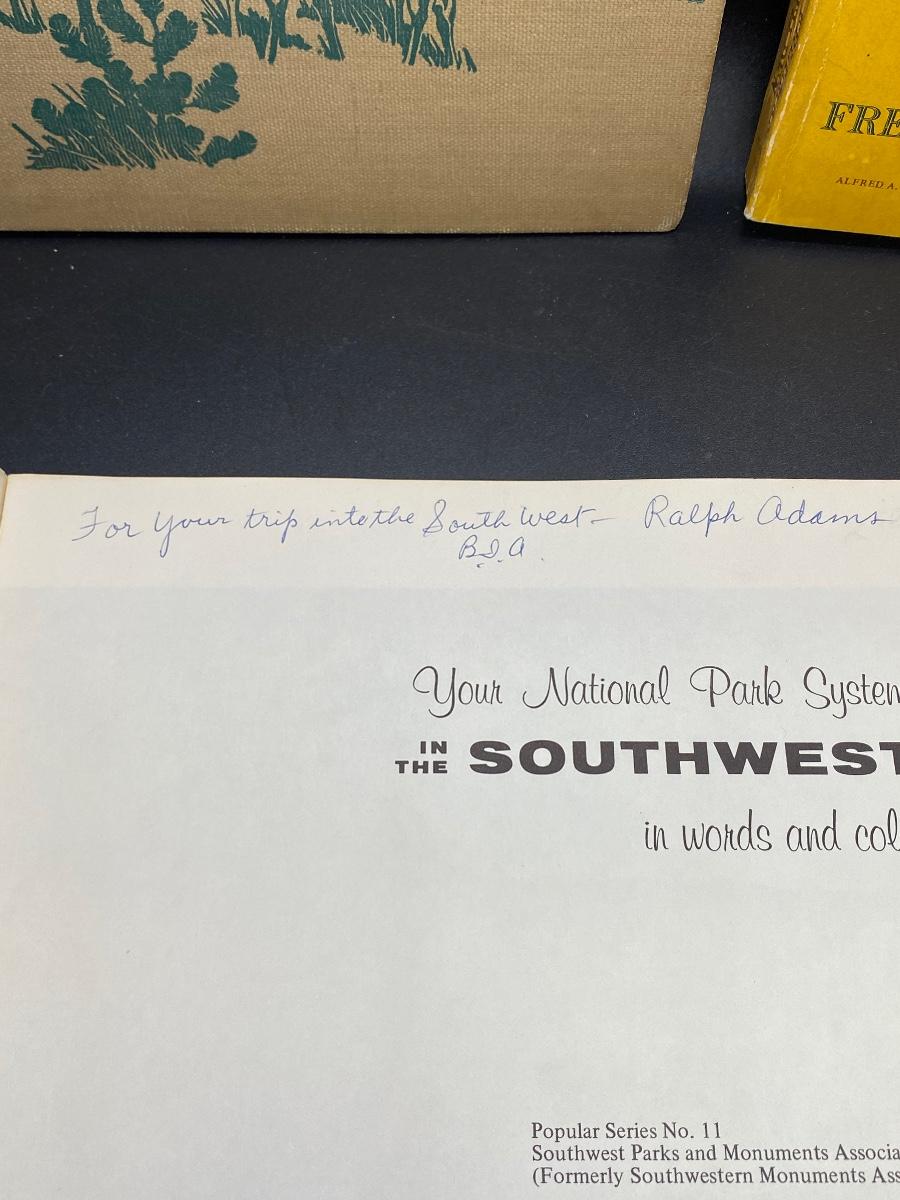 FRE
ALFRED A.
For Your trip into the South West – Ralph Adams
B.I.A.
Your National Park System
IN THE SOUTHWEST
in words and col
Popular Series No. 11
Southwest Parks and Monuments Associa
(Formerly Southwestern Monuments Ass